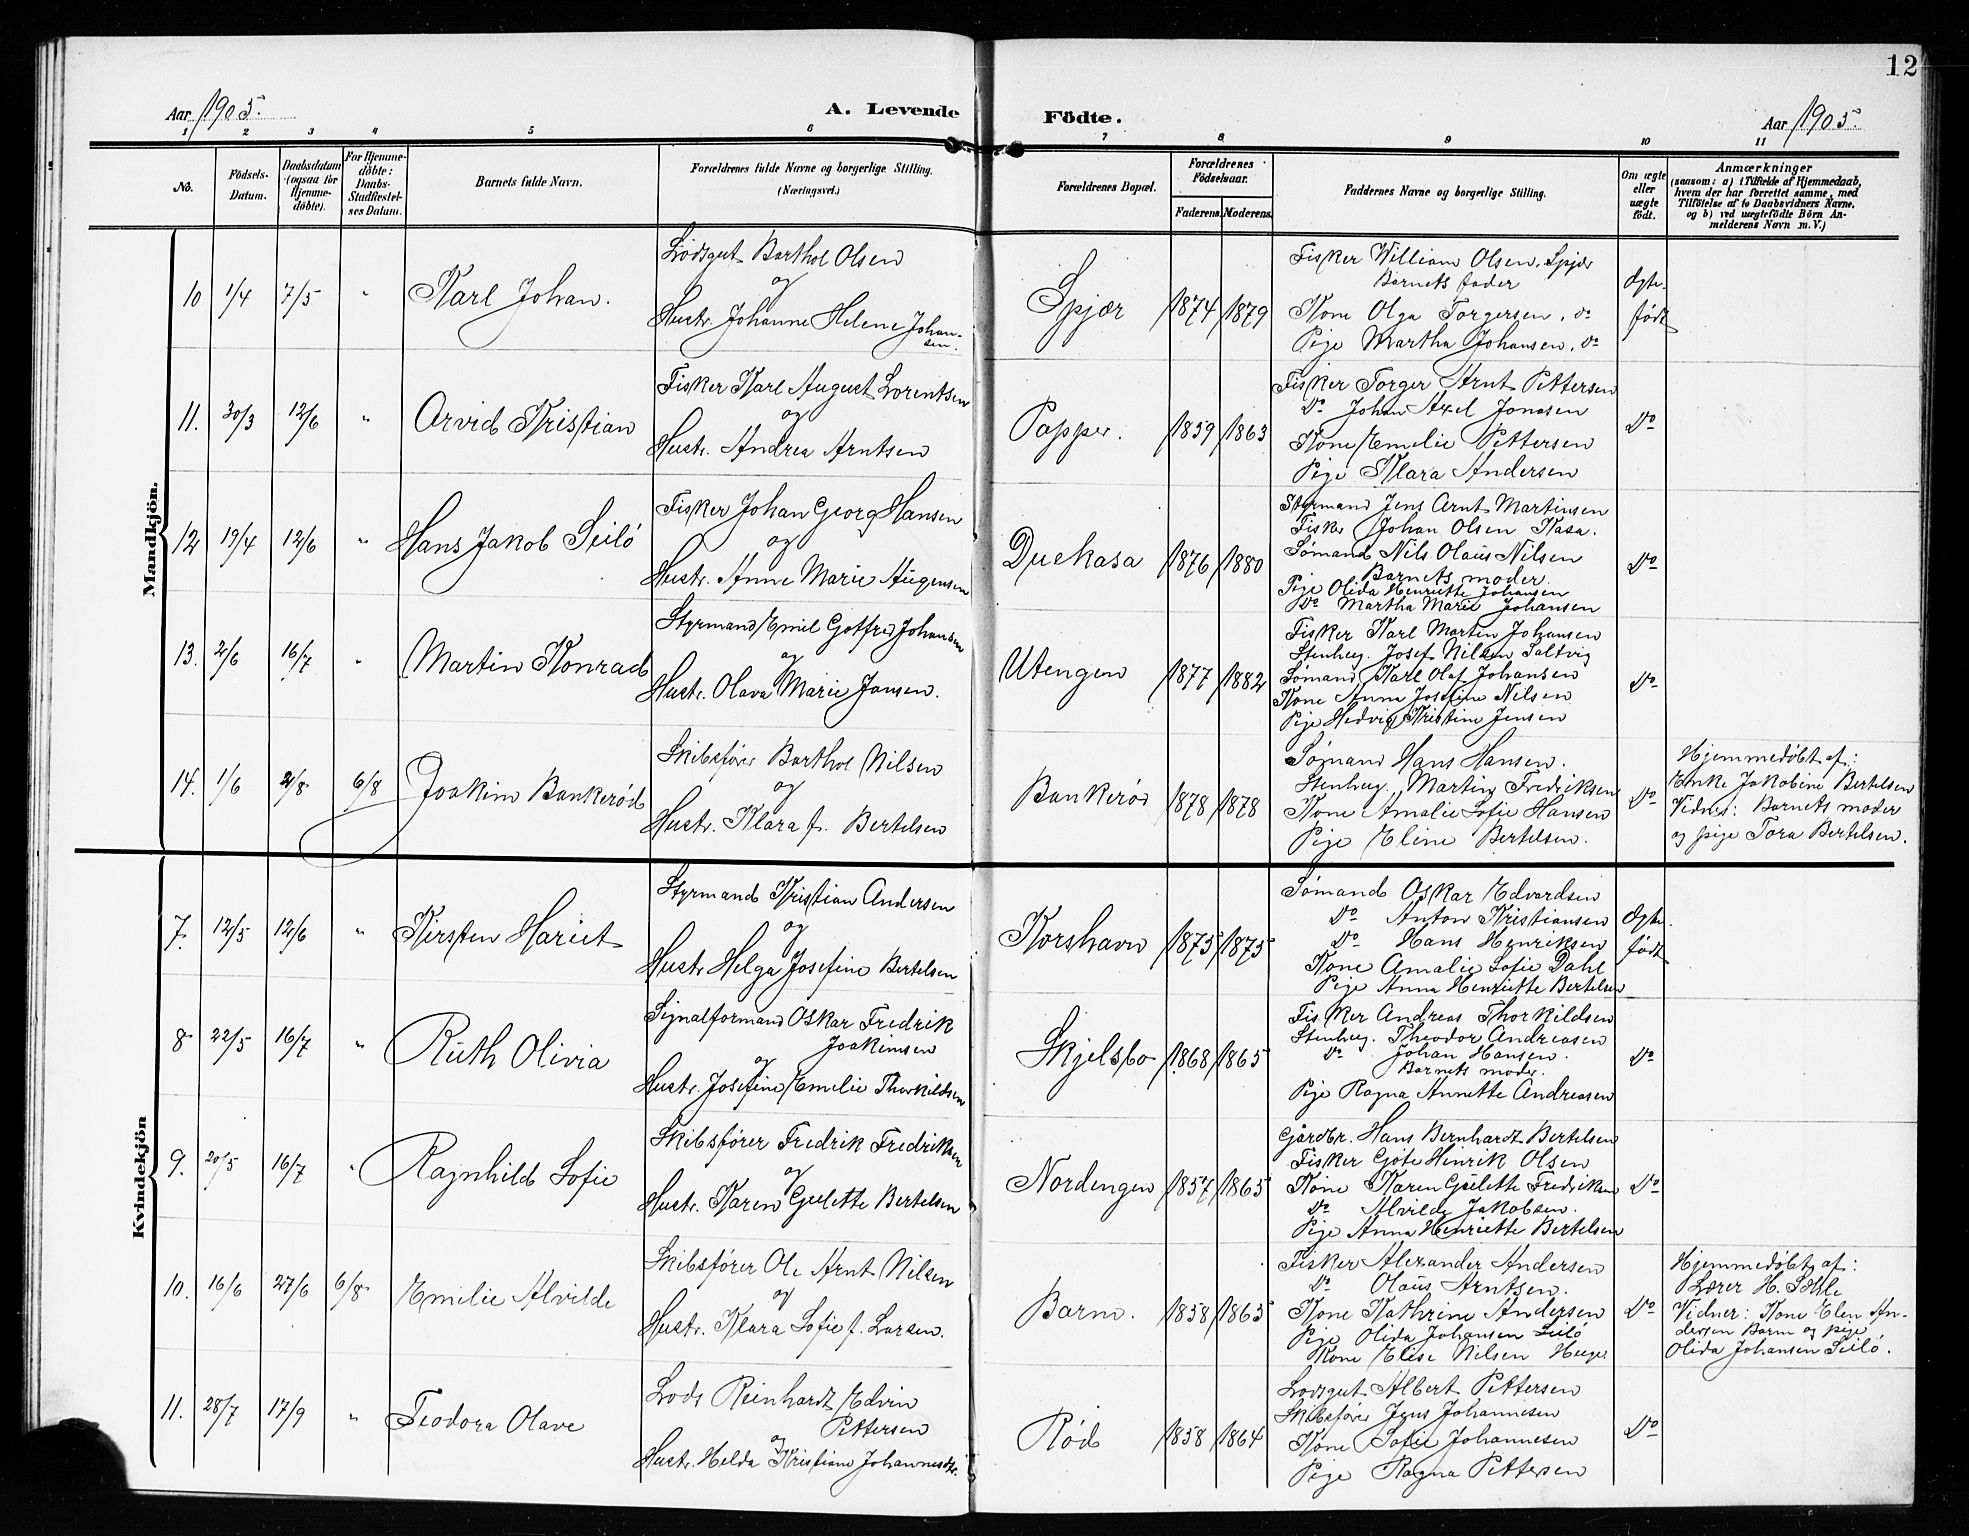 12
Aar 1905.
A. Levende Födte.
Aar 1905.
1 2 3 4 5 6 7 8 9 10 11
No.
Födsels-Datum.
Daabsdatum (ogsaa for Hjemme-döbte).
For Hjemme-döbte: Daabs-Stadfæstel-ses Datum.
Barnets fulde Navn.
Forældrenes fulde Navne og borgerlige Stilling. (Næringsvei.)
Forældrenes Bopæl.
Forældrenes Födselsaar.
Faderens. Moderens.
Faddernes Navne og borgerlige Stilling.
Om ægte eller uægte födt.
Anmærkninger
(saasom: a) i Tilfælde af Hjemmedaab, hvem der har forrettet samme, med Tilföielse af to Daabsvidners Navne, og b) ved uægtefödte Börn An-melderens Navn m. V.)
Mandkjön.
10 1/4 7/5 " Karl Johan.
Lodsgut Barthol Olsen
og
Hustr. Johanne Helene Johan-
sen.
Spjær 1874 1879
Fisker William Olsen, Spjær
Barnets fader
Kone Olga Torgersen, do
Pige Martha Johansen, do
Ægte-
født
11. 30/3 12/6 " Arvid Kristian
Fisker Karl August Lorentsen
og
Hustr. Andrea Arntsen
Papper. 1859 1863
Fisker Torger Arnt Pettersen
do Johan Axel Jonasen
Kone Emelie Pettersen
Pige Klara Andersen
do
12 19/4 12/6 " Hans Jakob Seilö
Fisker Johan Georg Hansen
og
Hustr. Anne Marie Augensen
Duekasa 1876 1880
Styrmand Jens Arnt Martinsen
Fisker Johan Olsen Kasa.
Sømand Nils Olaus Nilsen
Barnets moder.
Pige Olida Henriette Johansen
do Martha Marie Johansen
do
13. 2/6 16/7 " Martin Konrad
Styrmand Emil Gotfred Johansen
og
Hustr. Olava Marie Jansen.
Utengen 1877 1882
Fisker Karl Martin Johansen
Stenhug. Josef Nilsen Saltvig
Sømand Karl Olaf Johansen
Kone Anna Josefine Nilsen
Pige Hedvig Kristine Jensen
do
14. 1/6 2/8 6/8 Joakim Bankerød
Skibsfører Barthol Nilsen
og
Hustr. Klara f. Bertelsen
Bankerød 1878 1878
Sømand Hans Hansen.
Stenhug. Martin Fredriksen
Kone Amalie Sofie Hansen
Pige Eline Bertelsen.
do
Hjemmedøbt af:
Enke Jakobine Bertelsen
Vidner: Barnets moder
og pige Tora Bertelsen.
Kvindekjön
7. 12/5 12/6 " Kirsten Hariet
Styrmand Kristian Andersen
og
Hustr Helga Josefine Bertelsen
Korshavn 1875 1875
Sømand Oskar Edvardsen
do Anton Kristiansen
do Hans Henriksen
Kone Amalie Sofie Dahl
Pige Anna Henriette Bertelsen
Ægte
født
8 22/5 16/7 " Ruth Olivia
Signalformand Oskar Fredrik
Joakimsen
og
Hustr. Josefine Emelie Thorkildsen
Skjelsbo 1868 1865
Fisker Andreas Thorkildsen
Stenhug. Theodor Andreasen
do Johan Hansen.
Barnets moder.
Pige Ragna Annette Andreasen
do
9. 20/5 16/7 " Ragnhild Sofie
Skibsfører Fredrik Fredriksen
og
Hustr. Karen Gulette Bertelsen
Nordengen 1857 1865
Gårdbr. Hans Bernhardt Bertelsen
Fisker Göte Hinrik Olsen
Kone Karen Gulette Fredriksen
do Alvilde Jakobsen.
Pige Anna Henriette Bertelsen
do
10. 16/6 27/6 6/8 Emelie Alvilde
Skibsfører Ole Arnt Nilsen
og
Hustr. Klara Sofie f. Larsen.
Barm. 1858 1863
Fisker Alexander Andersen
do Olaus Arntsen.
Kone Kathrine Andersen
Pige Olida Johansen Seilö
Kone Elise Nilsen
do
Hjemmedøbt af:
Lærer H. Sæhle
Vidner: Kone Elen An-
dersen Barm og pige
Olida Johansen Seilö.
11. 28/7 17/9 " Teodora Olave
Lods Reinhardt Edvin
Pettersen
og
Hustr. Helda Kristiane Johannesdtr.
Rød 1858 1864
Lodsgut Albert Pettersen
Skibsfører Jens Johannesen
Kone Sofie Johannesen
Pige Ragna Pettersen
do